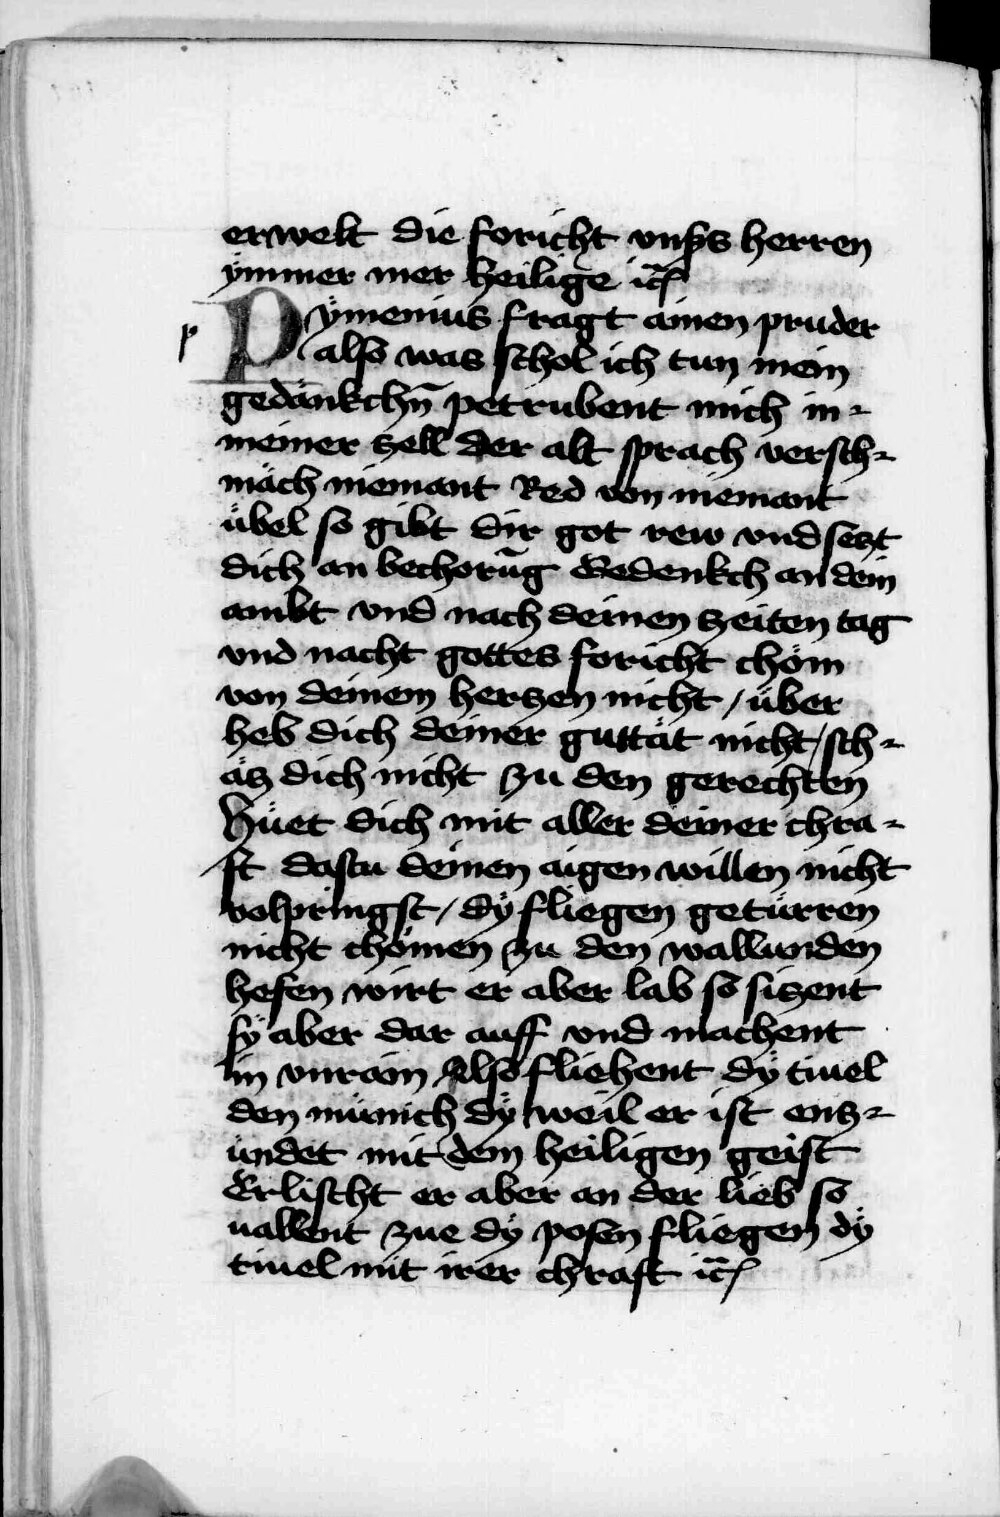 erwelt die foricht vnß̸s herren
ÿmmer mer heilige ic̃
p
Pÿmenius fragt ainen pruder
also was schol ich tun mein
gedänkchñ petrubent mich in-
meiner zell der alt sprach versch-
mäch niemant Red von niemant
übel so gibt dir got rew vnd setzt
dich an bechorūg Gedenkch an dein
ambt vnd nach deinen zeiten tag
vnd nacht gottes foricht chöm
von deinem herzen nicht / über
heb dich deiner guttät nicht / sch-
äz dich nicht zu den gerechten
Hüet dich mit aller deiner chra-
ft dastu deinen aigen willen nicht
volpringst / dÿ fliegen getürren
nicht chömen zu den wallunden
hefen wirt er aber lab so sizent
sÿ aber dar auff vnd machent
in vnrain Also fliehent dÿ tiuel
den münich dÿ weil er ist enz-
ündet mit dem heiligen geist
Erlischt er aber an der lieb so
uallent zue dÿ posen fliegen dÿ
tiuel mit irer chraft ic̃